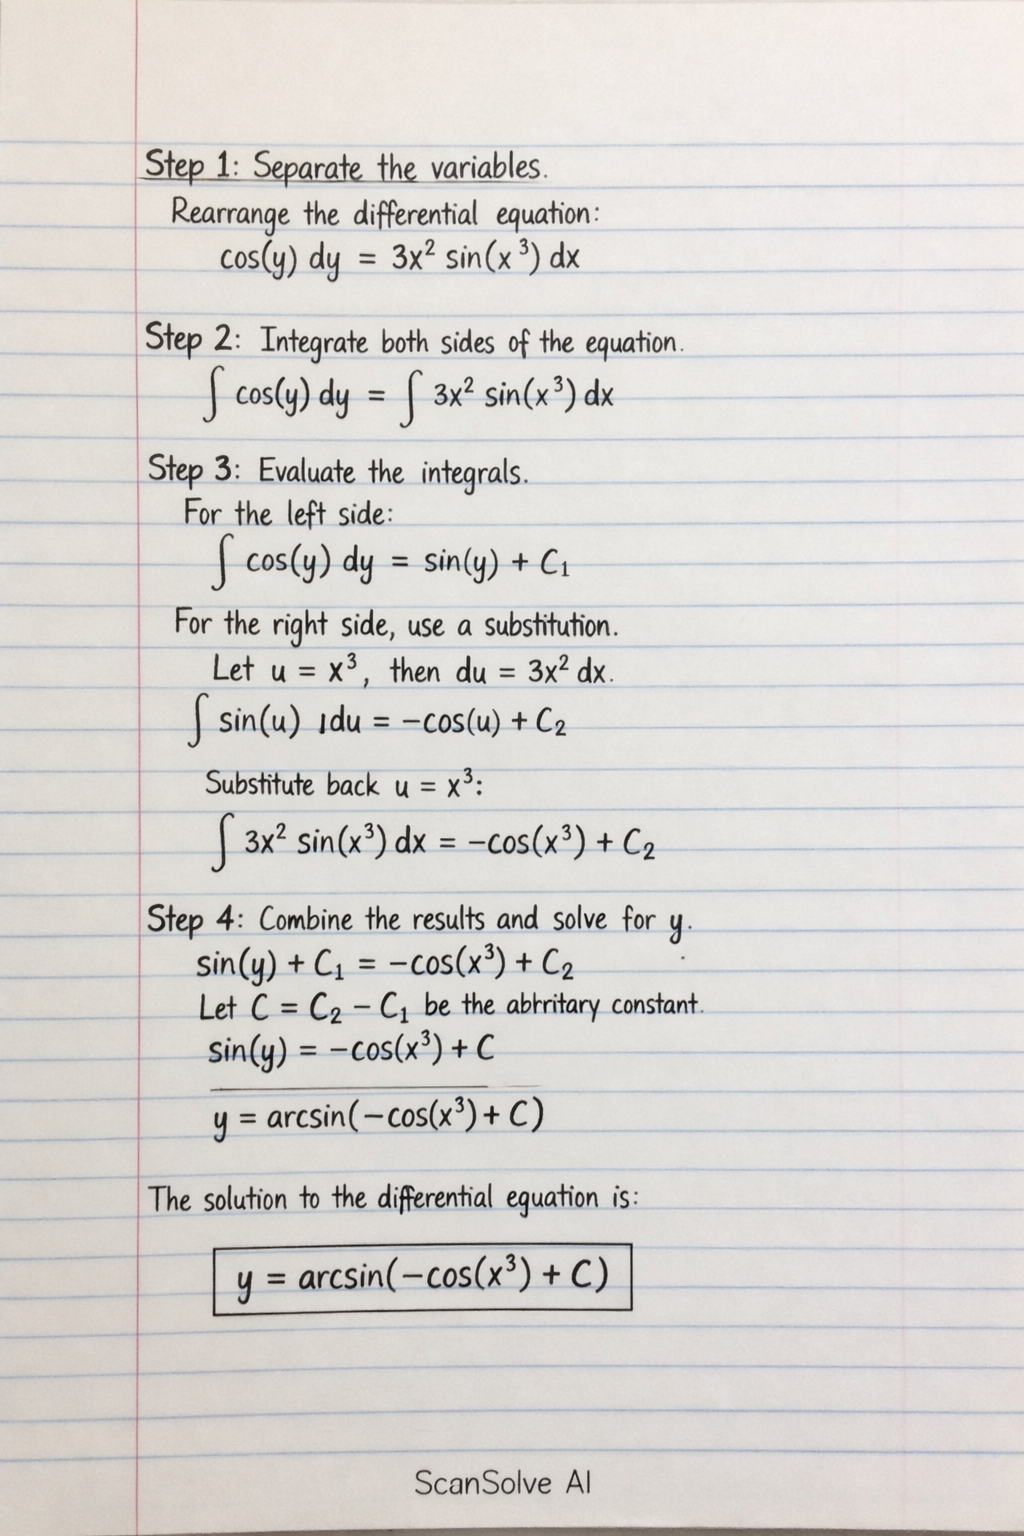 Step 1: Separate the variables.
Rearrange the differential equation:
cos(y) dy = 3x² sin(x³) dx
Step 2: Integrate both sides of the equation.
∫ cos(y) dy = ∫ 3x² sin(x³) dx
Step 3: Evaluate the integrals.
For the left side:
∫ cos(y) dy = sin(y) + C₁
For the right side, use a substitution.
Let u = x³, then du = 3x² dx.
∫ sin(u) 1du = −cos(u) + C₂
Substitute back u = x³:
∫ 3x² sin(x³) dx = −cos(x³) + C₂
Step 4: Combine the results and solve for y.
sin(y) + C₁ = −cos(x³) + C₂
Let C = C₂ − C₁ be the constant.
sin(y) = −cos(x³) + C
y = arcsin(−cos(x³) + C)
The solution to the differential equation is:
y = arcsin(−cos(x³) + C)
ScanSolve AI